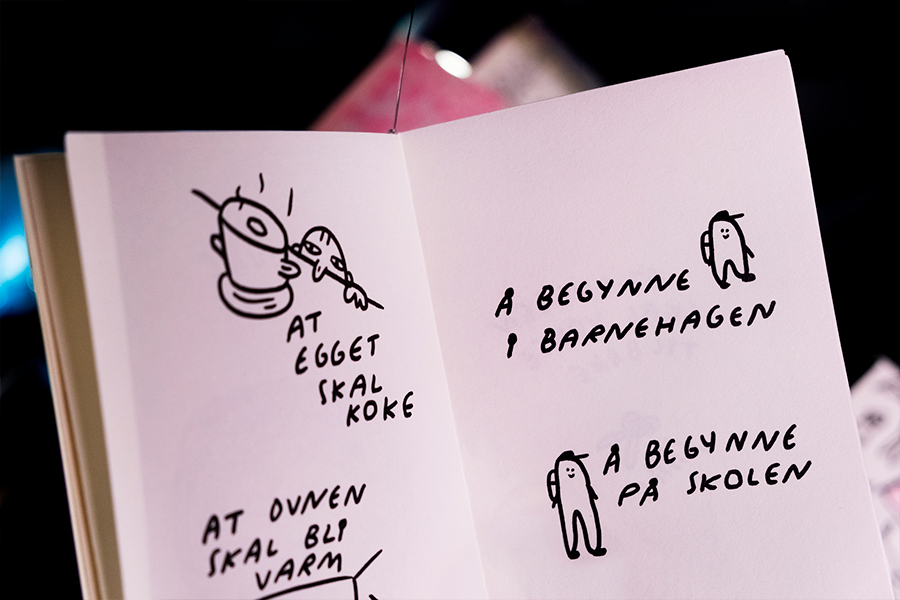 AT
EGGET
SKAL
KOKE
AT OVNEN
SKAL BLI
VARM
Å BEGYNNE
I BARNEHAGEN
Å BEGYNNE
PÅ SKOLEN